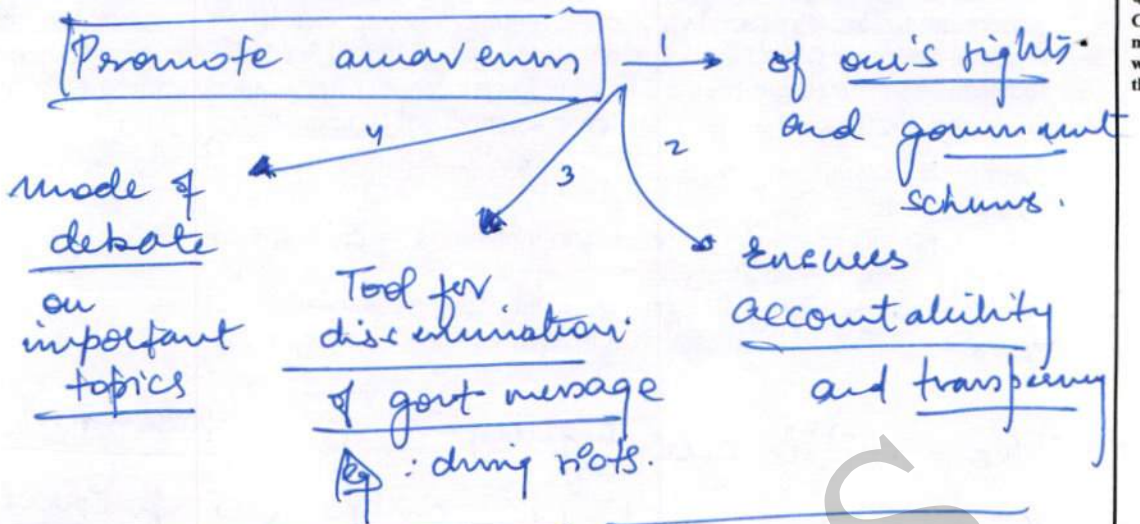 Promote awareness
1
of one's rights
and government
schemes.
2
ensures
accountability
and transparency
3
Tool for
dissemination
of govt message
eg : during riots.
4
mode of
debate
on
important
topics